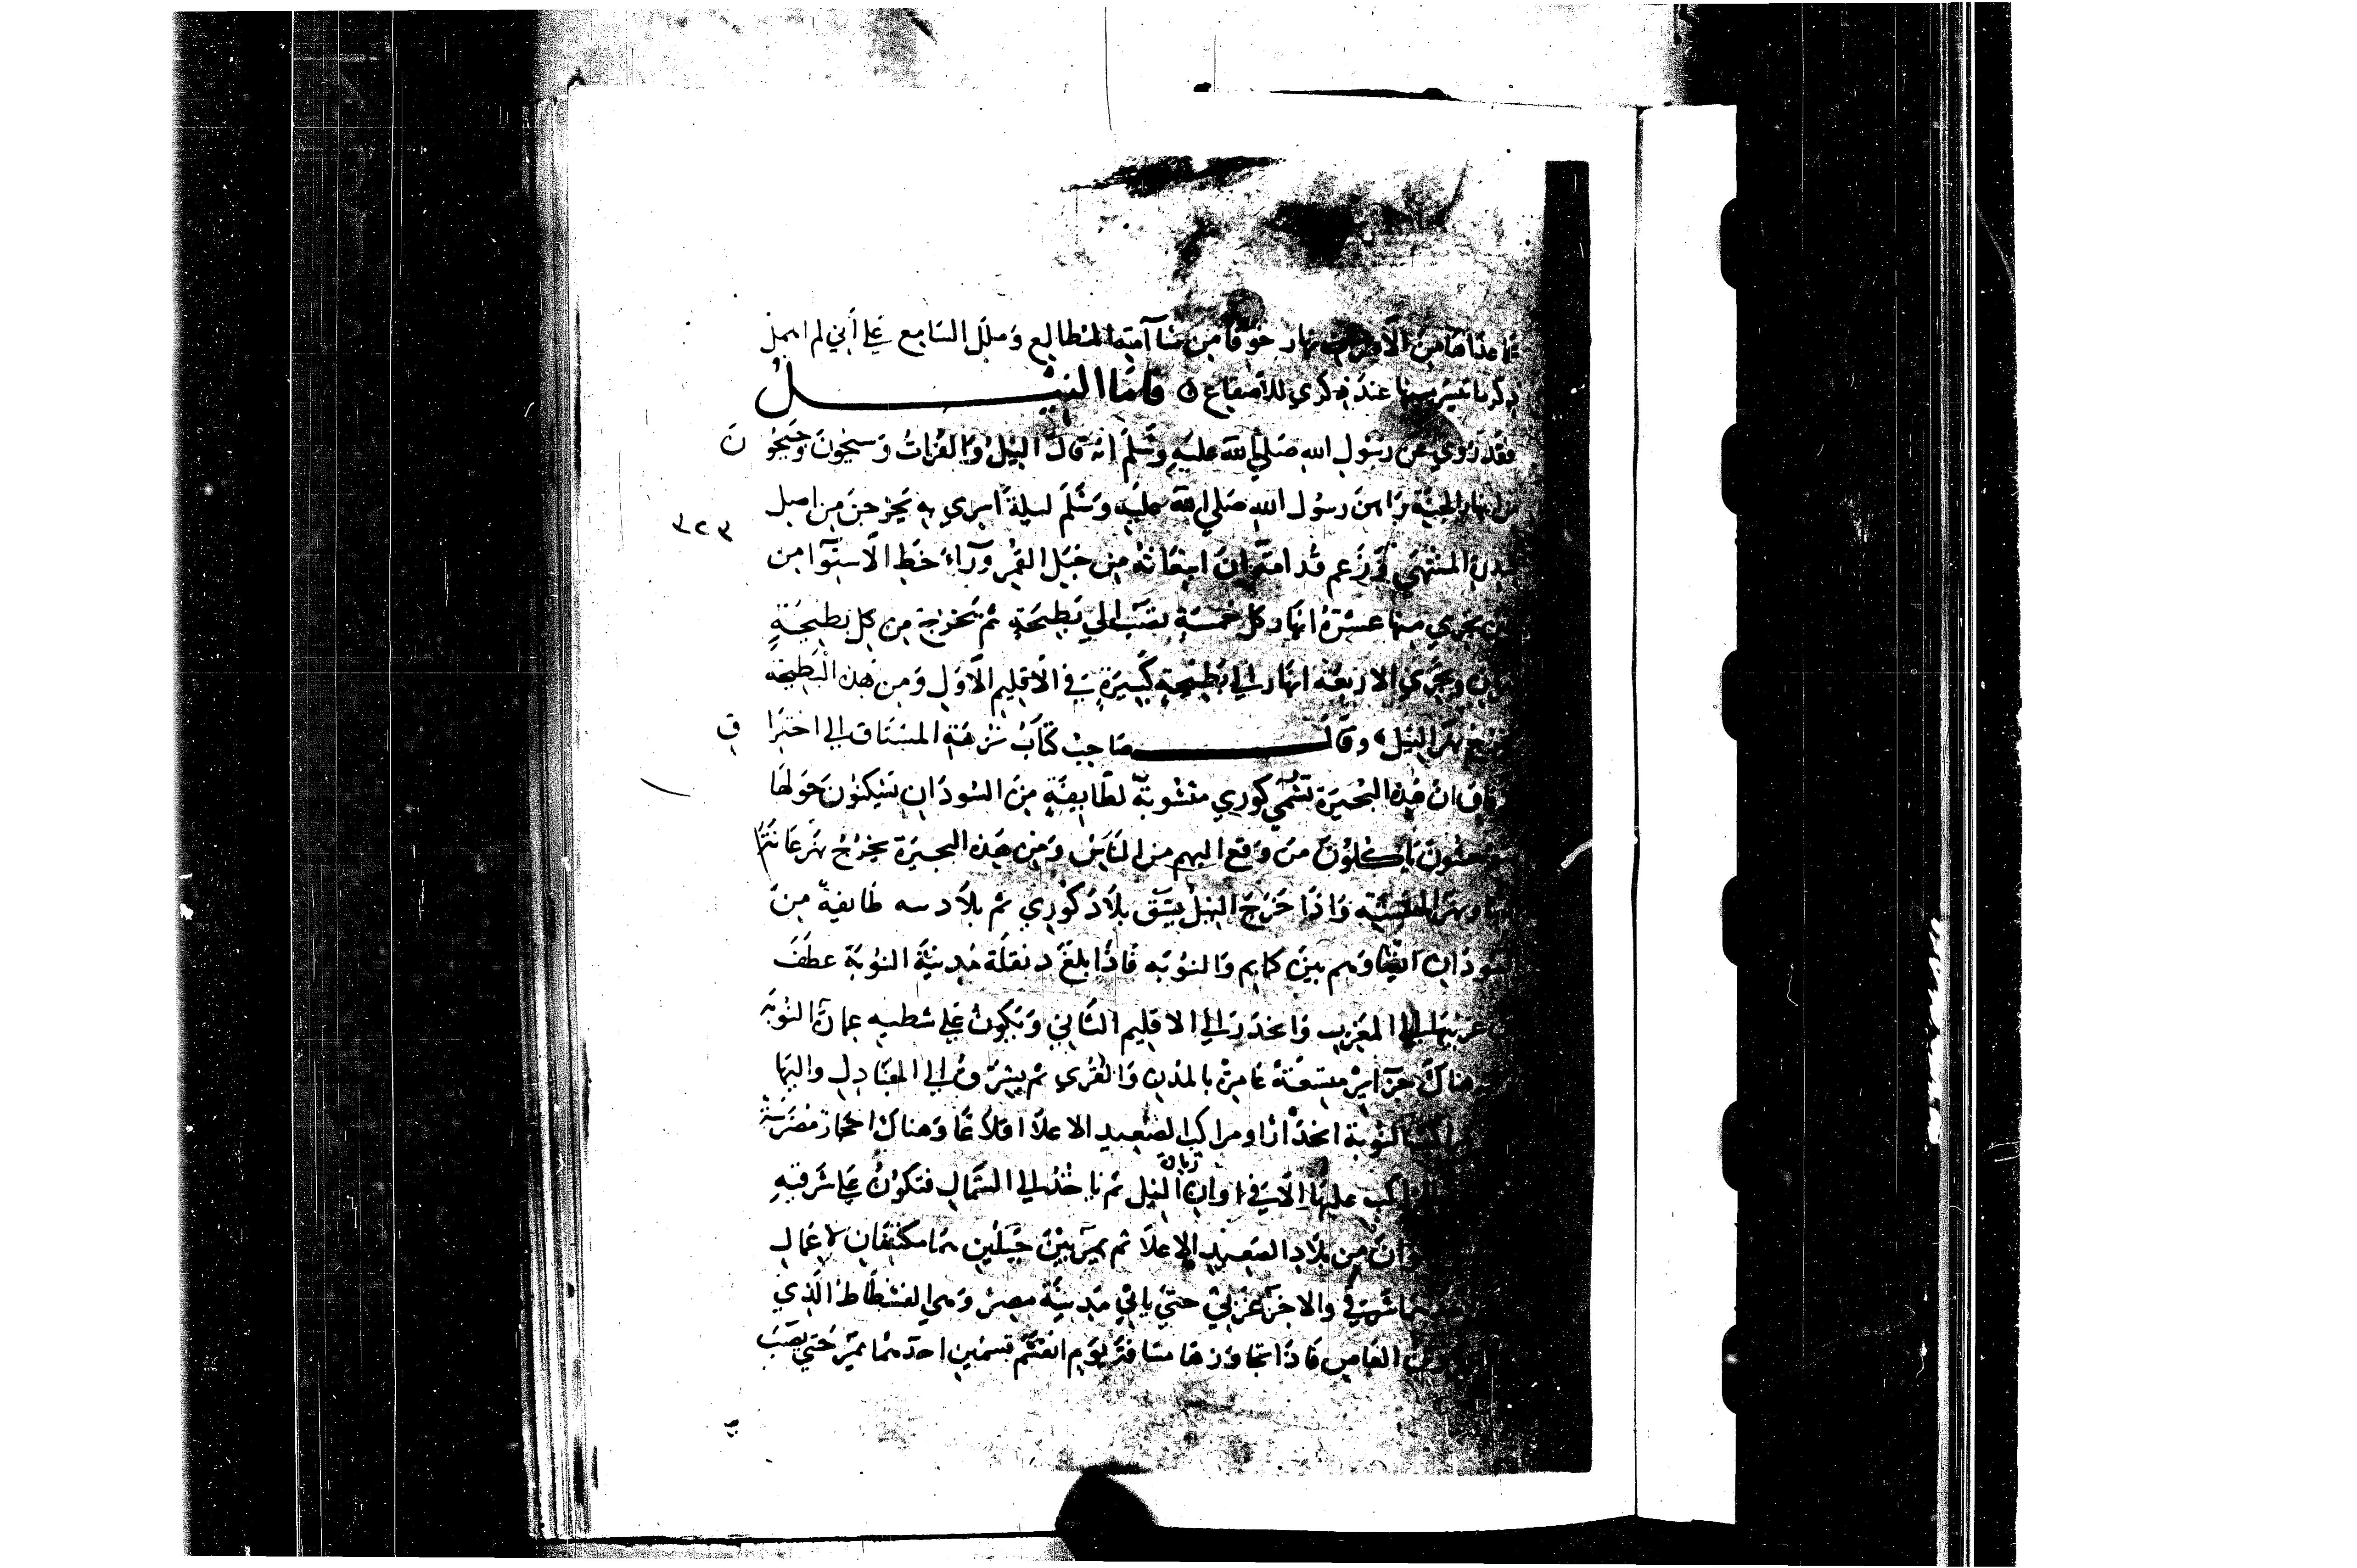 ما عداها من الأنهار خوفا من سآمة المطالع وملل السامع على أني لم اهمل
ذكر ما تيسر منها عند ذكري للاصقاع فاما النيل
فقد روي عن رسول الله صلى الله عليه وسلم انه قال النيل والفرات وسيحون وجيحون
من انهار الجنة رآهن رسول الله صلى الله عليه وسلم ليلة اسري به يخرجن من اصل
المنتهي وزعم قدامة ان انبعاثه من جبل القمر ورآء خط الاستوآ من
يجري منها عشرة انهار كل خمسة تصب الي بطيحة ثم تخرج من كل بطيحة
وتجري الاربعة انهار الي بطيحة كبيرة في الاقليم الاول ومن هذه البطيحة
يخرج نهر النيل وقال صاحب كتاب نزهة المشتاق الي اختراق
ان هذه البحيرة تسمي كوري منسوبة لطايفة من السودان يسكنون حولها
ياكلون من وقع اليهم من الناس ومن هذه البحيرة يخرج نهر غانة
ونهر الحبشة واذا خرج النيل يشق بلاد كوري ثم بلاد سه طايفة من
السودان ايضا وهم بين كانم والنوبه فاذا بلغ دنقلة مدينة النوبة عطف
غربيها الي المغرب وانحدر الي الاقليم الثاني وتكون علي شطيه عمارة النوبة
هناك جزآير متسعة عامرة بالمدن والقري ثم يشرق الي الجنادل واليها
النوبة انحدارا ومراكب الصعيد الاعلا اقلاعا وهناك احجار مضرسة
عليها الا في اوان زيادة النيل ثم ياخذ الي الشمال فتكون علي شرقيه
من بلاد الصعيد الاعلا ثم يمر بين جبلين هما مكتنفان لاعمال
شرقي والاخر غربي حتي ياتي مدينة مصر وهي الفسطاط الذي
العاص فاذا تجاوزها مسافة يوم انقسم قسمين احدهما يمر حتي يصب
٣٢٣